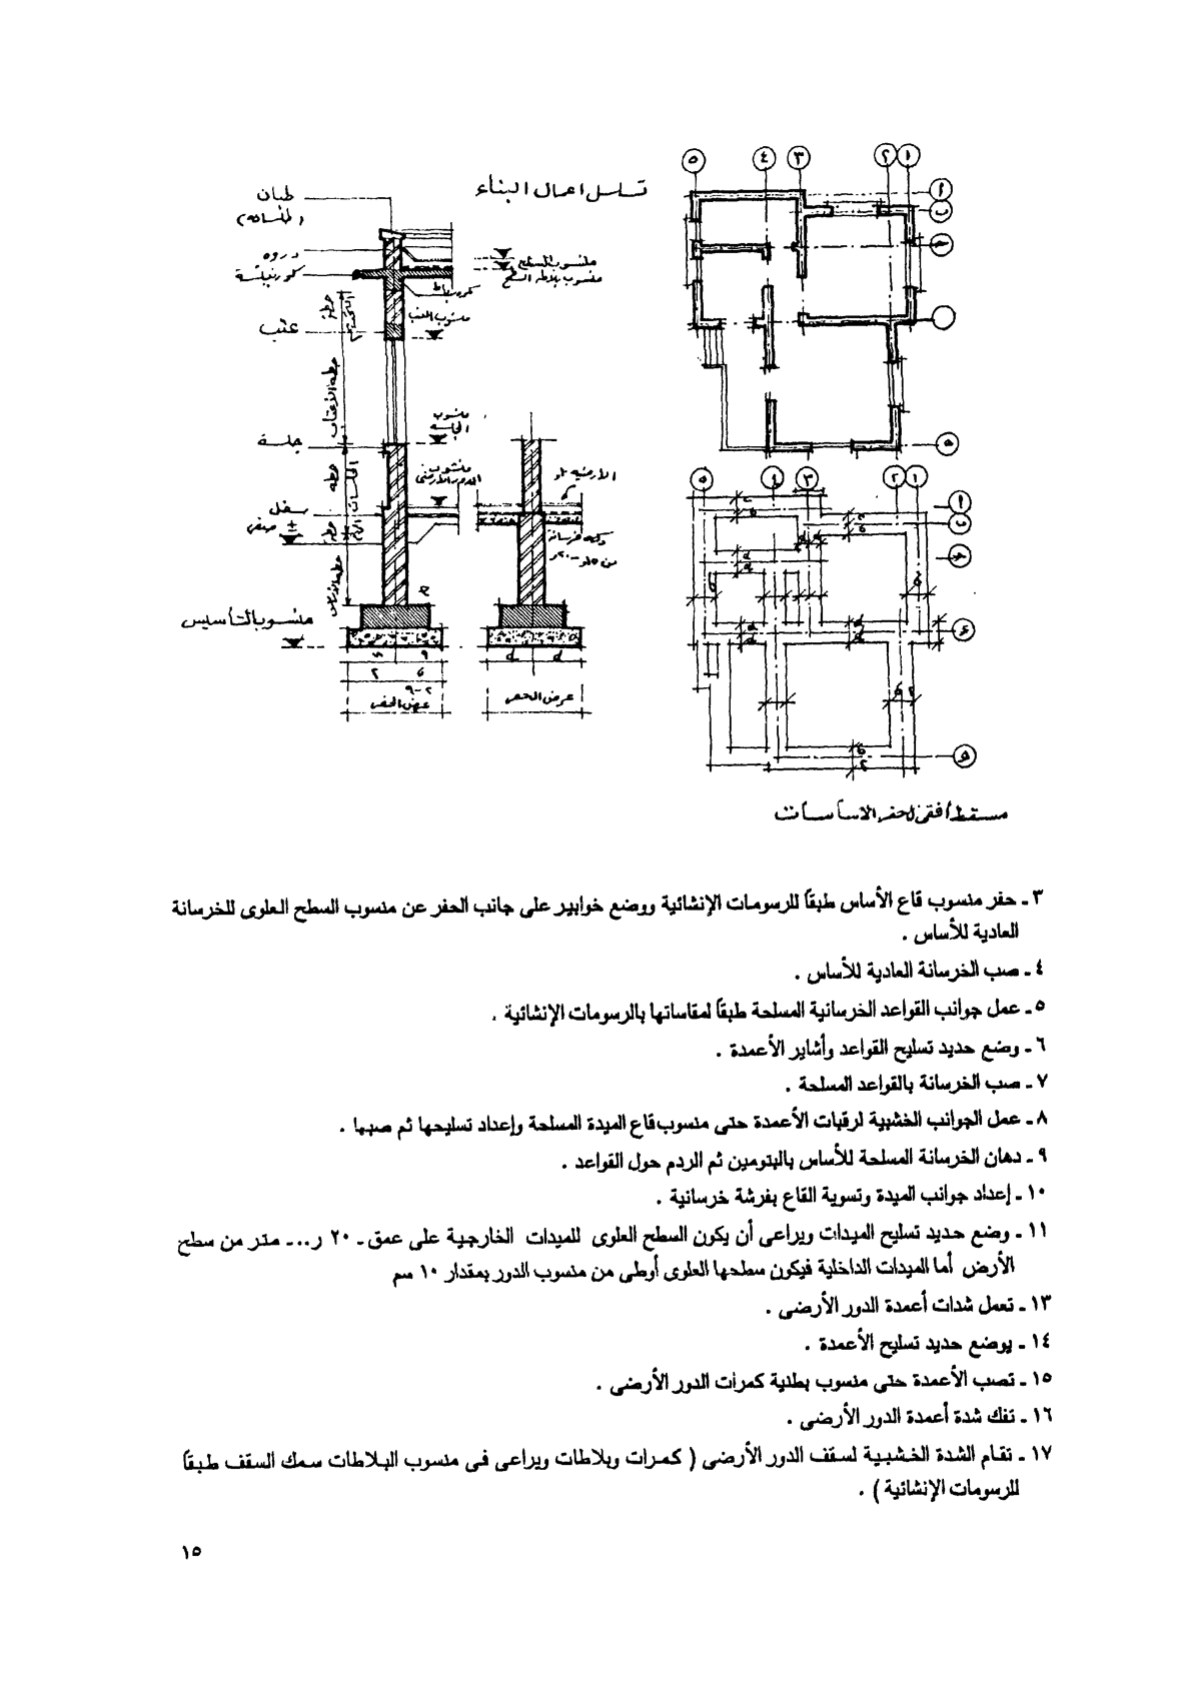 تسلسل اعمال البناء
طبان
دروه
كورنيشة
منسوب السطح
منسوب بلاطة السطح
منسوب العتب
عتب
منسوب
الجلسة
جلسة
منسوب
الدور الأرضى
سفل
± صفر
منسوب التأسيس
عرض الحفر
عرض الحفر
٥ ٤ ٣ ٢ ١
أ
ب
٥
٥ ٤ ٣ ٢ ١
أ
ب
٥
مسقط أفقى لحفر الاساسات
٣ ـ حفر منسوب قاع الأساس طبقاً للرسومات الإنشائية ووضع خوابير على جانب الحفر عن منسوب السطح العلوى للخرسانة
العادية للأساس .
٤ ـ صب الخرسانة العادية للأساس .
٥ ـ عمل جوانب القواعد الخرسانية المسلحة طبقاً لمقاساتها بالرسومات الإنشائية .
٦ ـ وضع حديد تسليح القواعد وأشاير الأعمدة .
٧ ـ صب الخرسانة بالقواعد المسلحة .
٨ ـ عمل الجوانب الخشبية لرقبات الأعمدة حتى منسوب قاع الميدة المسلحة وإعداد تسليحها ثم صبها .
٩ ـ دهان الخرسانة المسلحة للأساس بالبتومين ثم الردم حول القواعد .
١٠ ـ إعداد جوانب الميدة وتسوية القاع بفرشة خرسانية .
١١ ـ وضع حديد تسليح الميدات ويراعى أن يكون السطح العلوى للميدات الخارجية على عمق ـ ٢٠ ر... ـ متر من سطح
الأرض أما الميدات الداخلية فيكون سطحها العلوى أوطى من منسوب الدور بمقدار ١٠ سم
١٣ ـ تعمل شدات أعمدة الدور الأرضى .
١٤ ـ يوضع حديد تسليح الأعمدة .
١٥ ـ تصب الأعمدة حتى منسوب بطنية كمرات الدور الأرضى .
١٦ ـ تفك شدة أعمدة الدور الأرضى .
١٧ ـ تقام الشدة الخشبية لسقف الدور الأرضى ( كمرات وبلاطات ويراعى فى منسوب البلاطات سمك السقف طبقاً
للرسومات الإنشائية ) .
١٥